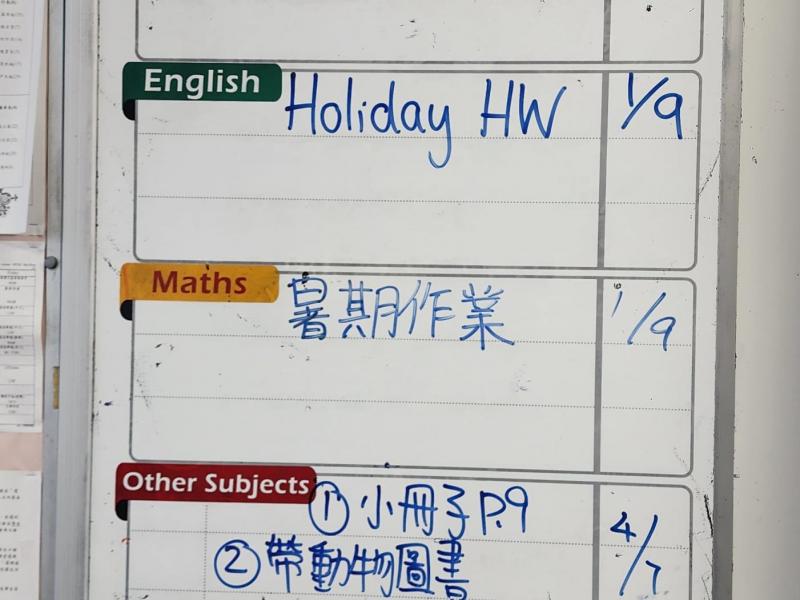 English
Holiday HW 1/9
Maths
暑期作業 1/9
Other Subjects
① 小冊子 P.9
4/7
② 帶動物圖書